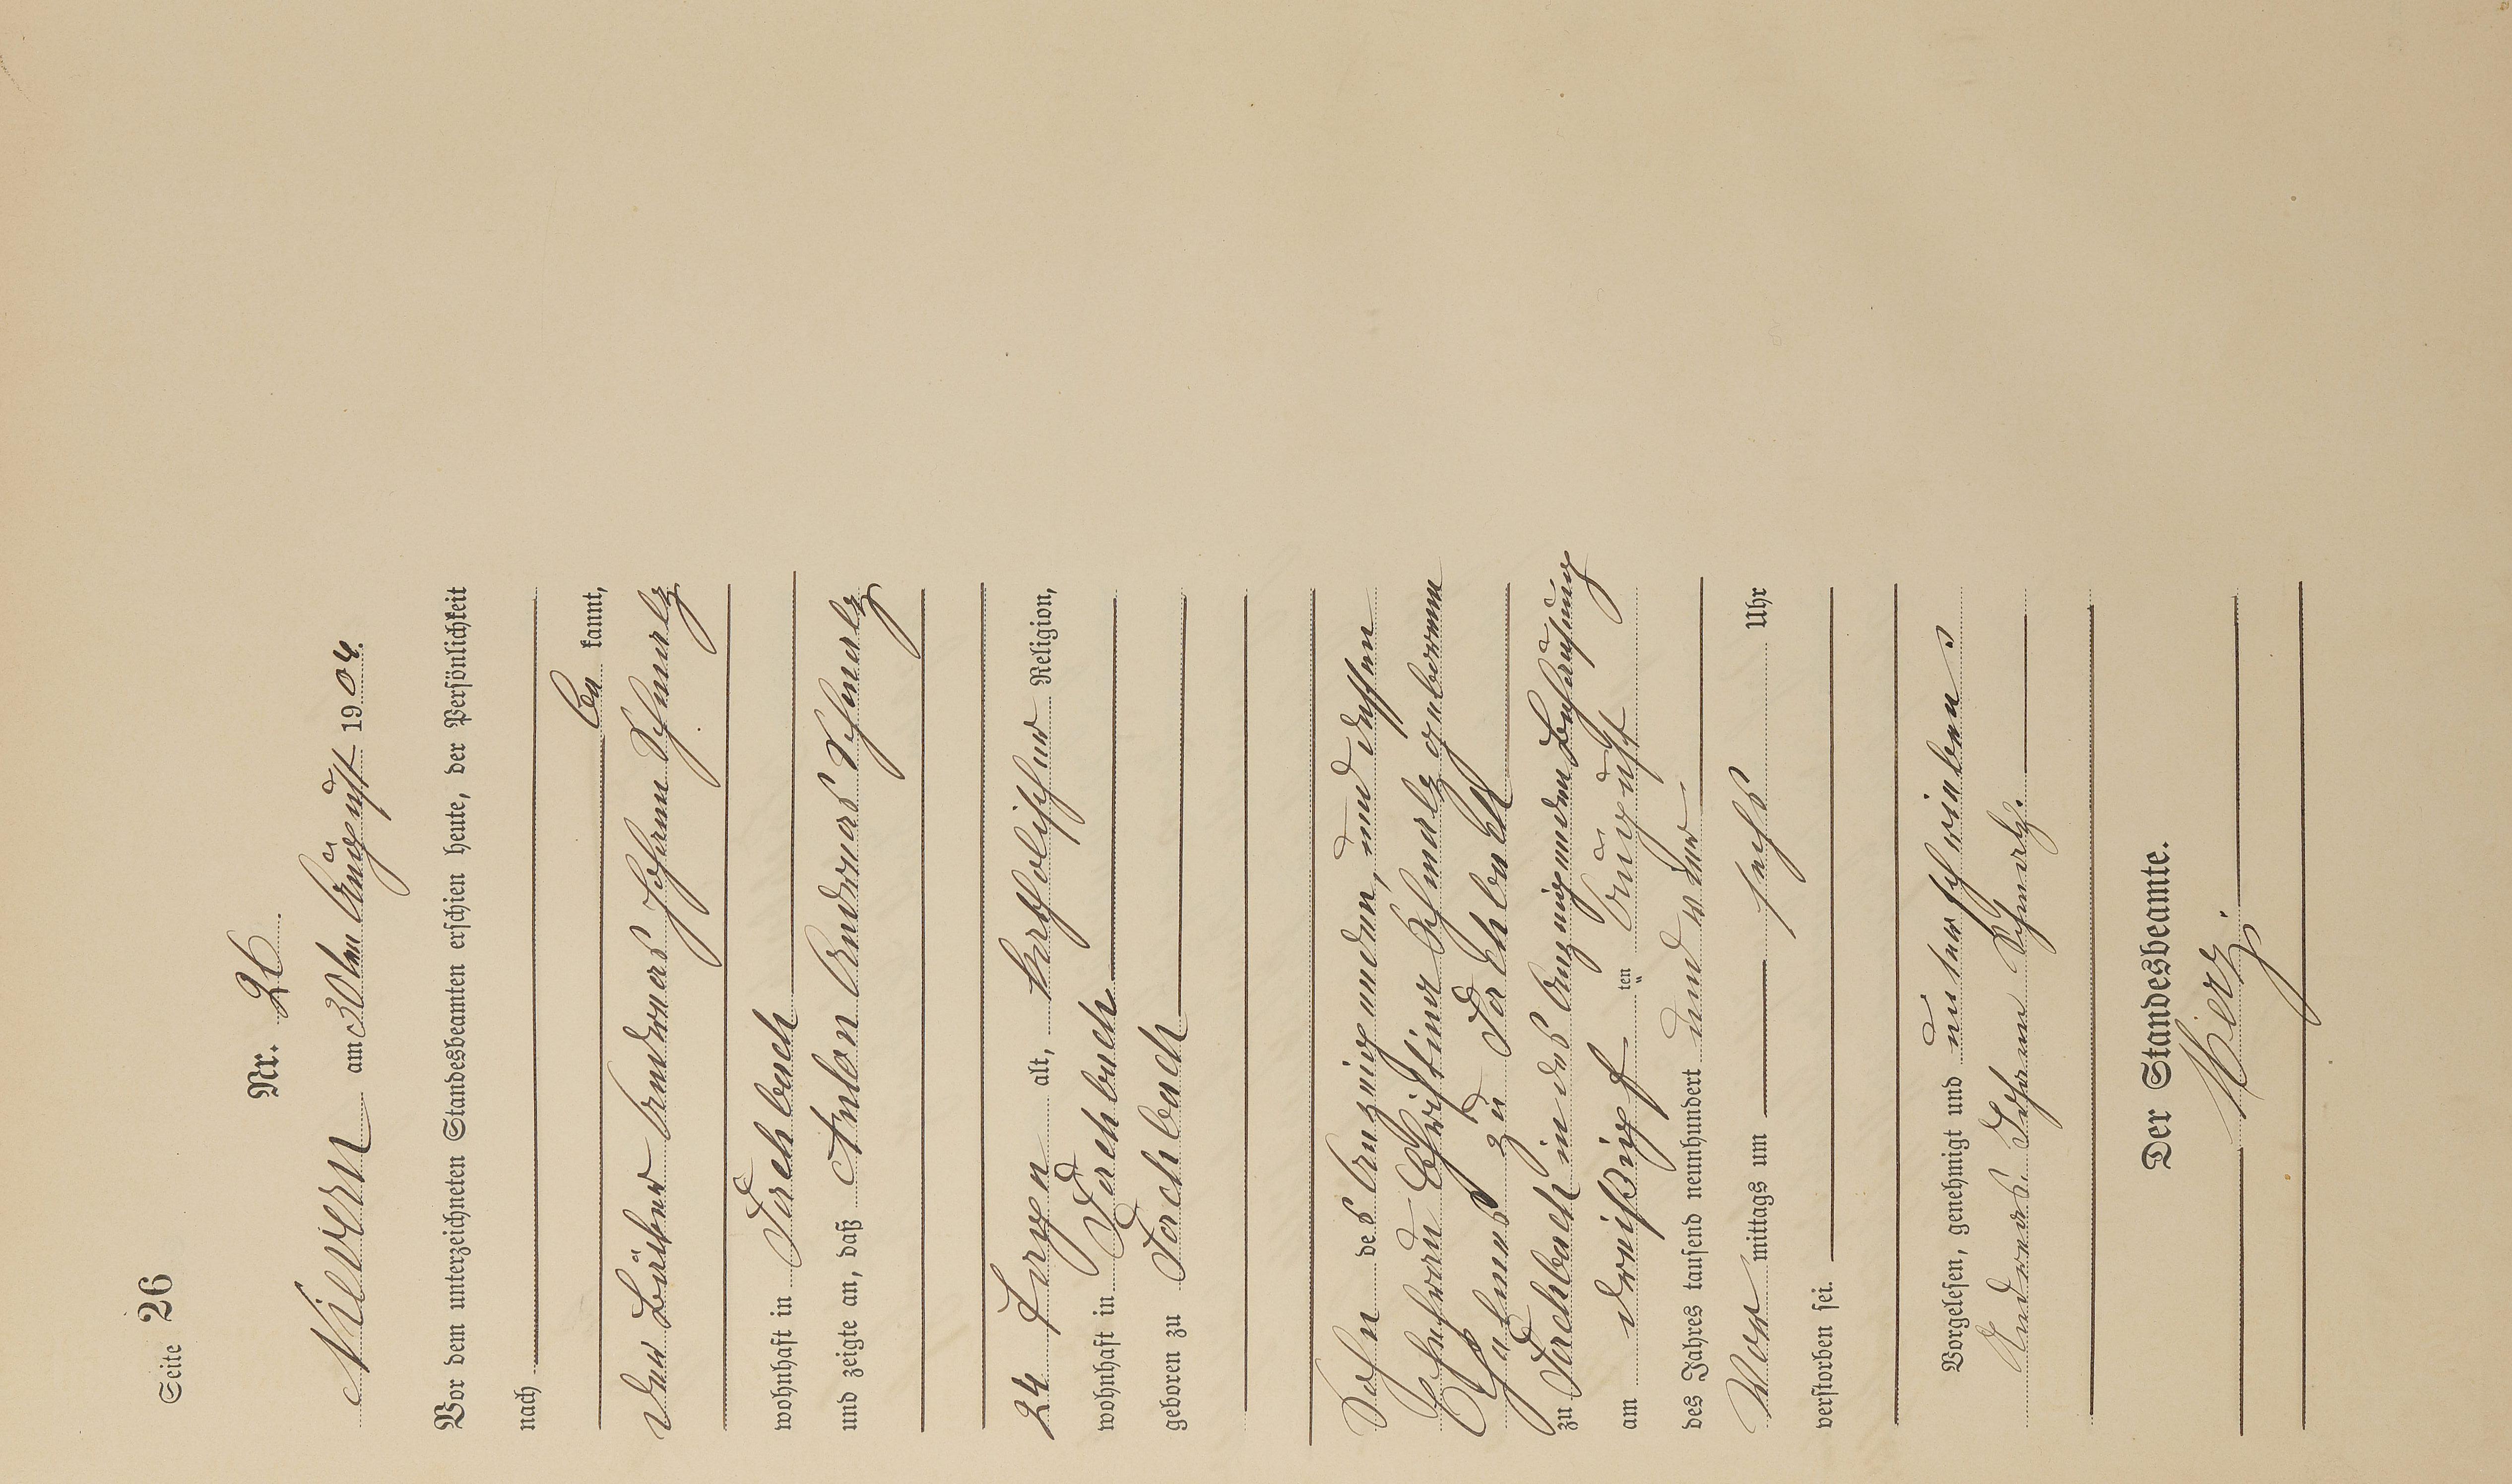 Seite 26
Nr. 26
Nievern am 30ten August 1904.
Vor dem unterzeichneten Standesbeamten erschien heute, der Persönlichkeit
nach
be kannt,
der Bäcker Andreas Johann Schmalz
wohnhaft in Fachbach
und zeigte an, daß Anton Andreas Schmalz
24 Tage alt, katholischer Religion,
wohnhaft in Fachbach
geboren zu Fachbach
Sohn des Anzeigenden, und dessen
Ehefrau Christine Schmalz geborenen
zu Fachbach
zu Fachbach in des Anzeigenden Behausung
am dreißigsten August
des Jahres tausend neunhundert und vier
Vor mittags um sechs Uhr
verstorben sei.
Vorgelesen, genehmigt und unterschrieben
Andreas Johann Schmalz.
Der Standesbeamte.